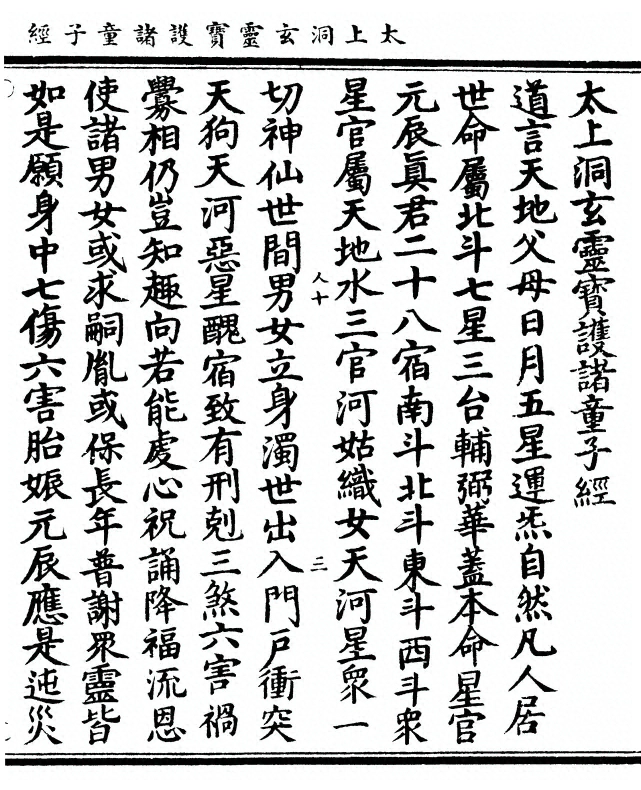 太上洞玄靈寶護諸童子經
太上洞玄靈寶護諸童子經
道言天地父母日月五星運炁自然凡人居
世命屬北斗七星三台輔弼華蓋本命星官
元辰眞君二十八宿南斗北斗東斗西斗衆
星官屬天地水三官河姑織女天河星衆一
人十
三
切神仙世間男女立身濁世出入門戶衝突
天狗天河惡星醜宿致有刑剋三煞六害禍
釁相仍豈知趣向若能虔心祝誦降福流恩
使諸男女或求嗣胤或保長年普謝眾靈皆
如是願身中七傷六害胎娠元辰應是迍災